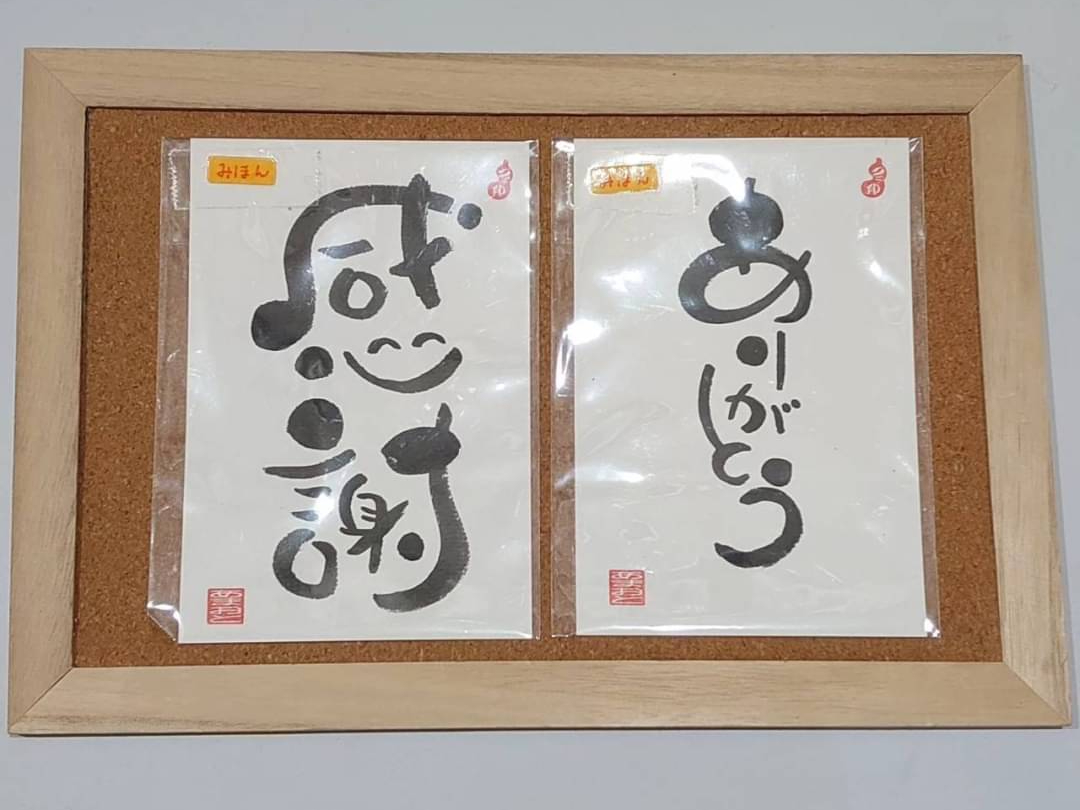 みほん
感謝
みほん
ありがとう